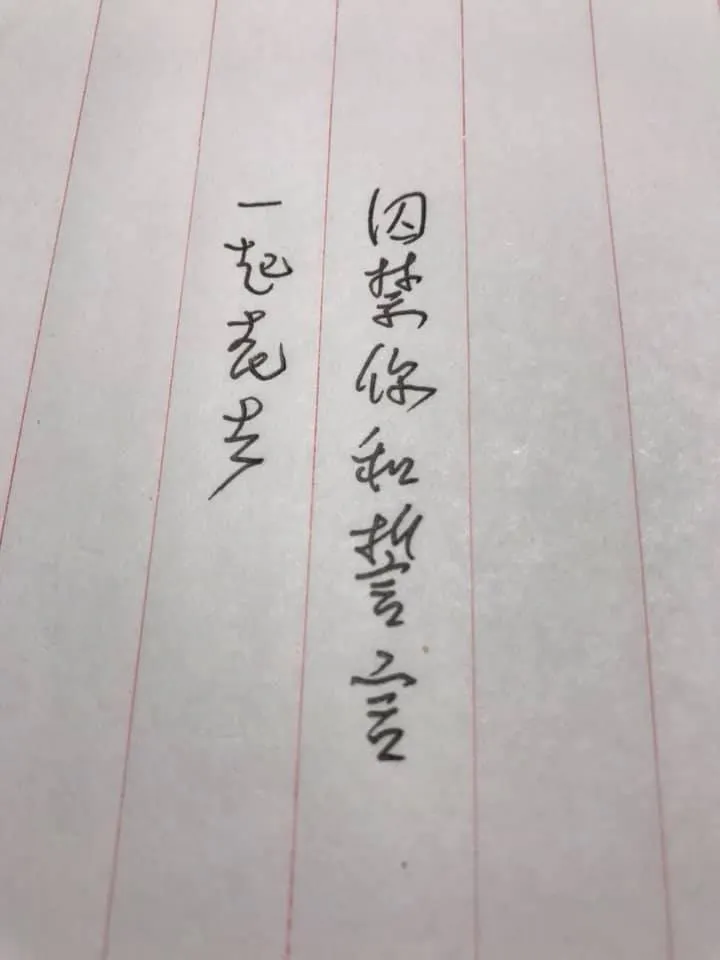 囚禁你和誓言
一起老去